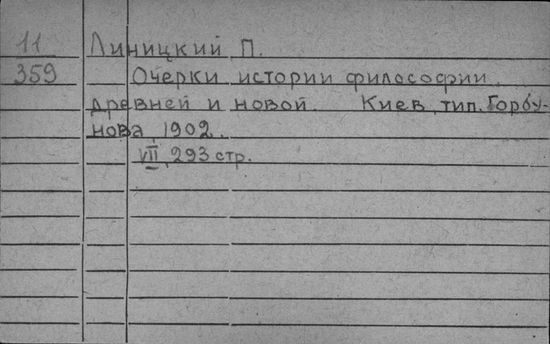 11 Линицкий П.
359 Очерки истории философии
древней и новой. Киев, тип. Горбу-
нова, 1902.
VII, 293 стр.